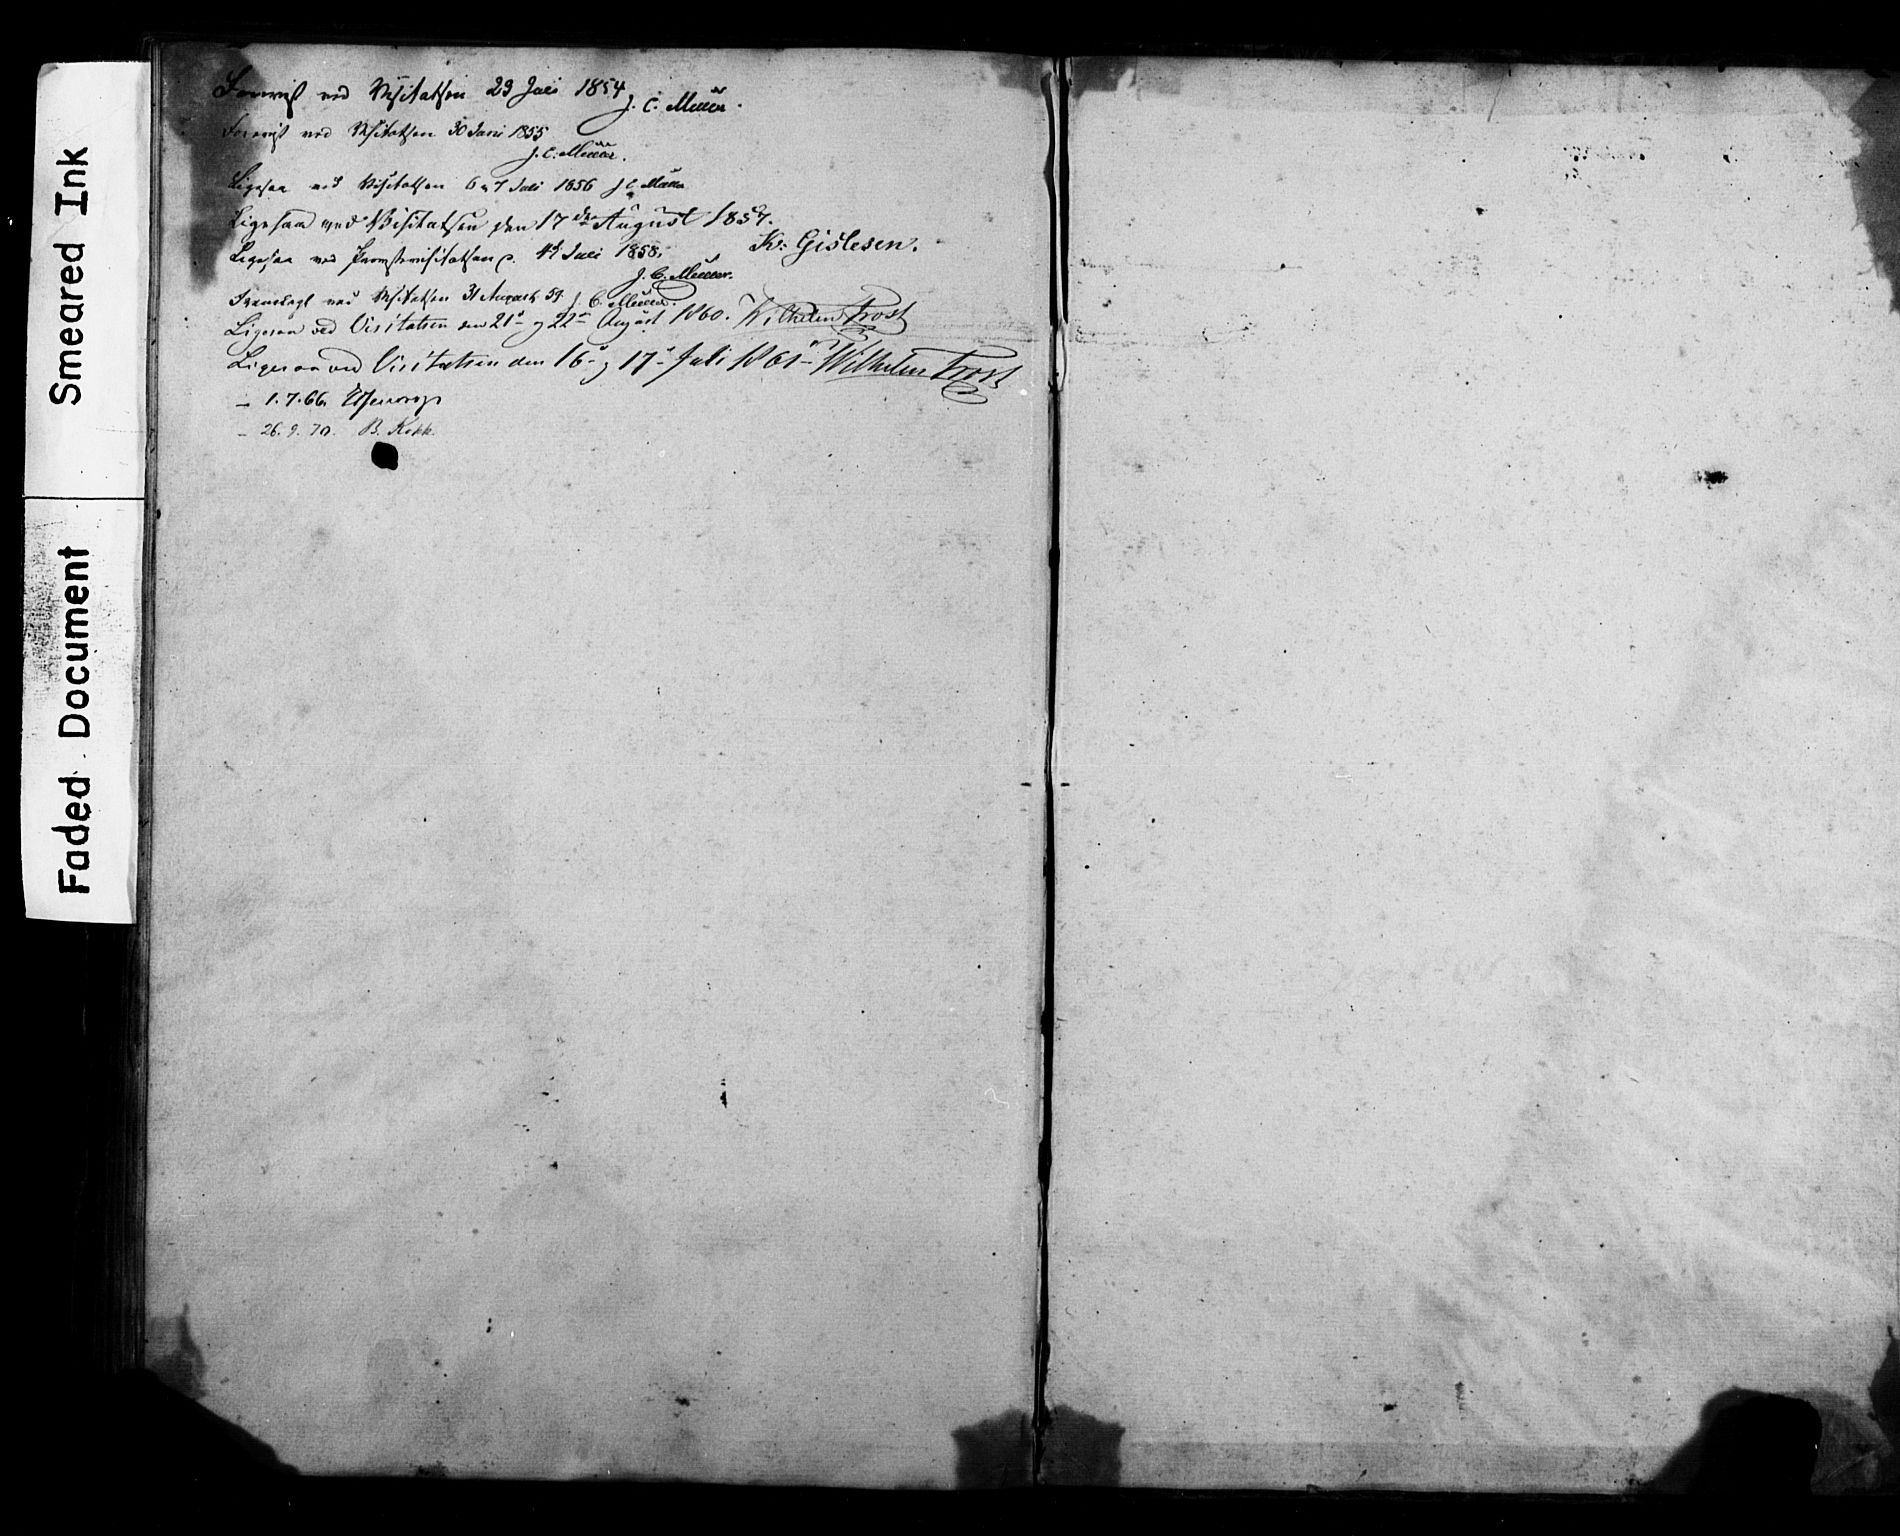 Smeared Ink
Faded Document
Foreviist ved Visitatsen 29 Juli 1854
J. C. Müller.
Foreviist ved Visitatsen 30 Juni 1855
J. C. Müller.
Ligesaa ved Visitatsen 6 & 7 Juli 1856 J C Müller
Ligesaa ved Visitatsen den 17de August 1857.
Kr: Gislesen.
Ligesaa ved Provstevisitatsen d. Juli 1858.
J. C. Müller.
Fremlagt ved Visitatsen 31 August 59. J. C. Müller.
Ligesaa ved Visitatsen den 21de og 22de August 1860. Wilhelm Frost
Ligesaa ved Visitatsen den 16de og 17de Juli 1861 Wilhelm Frost
– 1.7.66.
– 26. 9. 70. B. Kokk